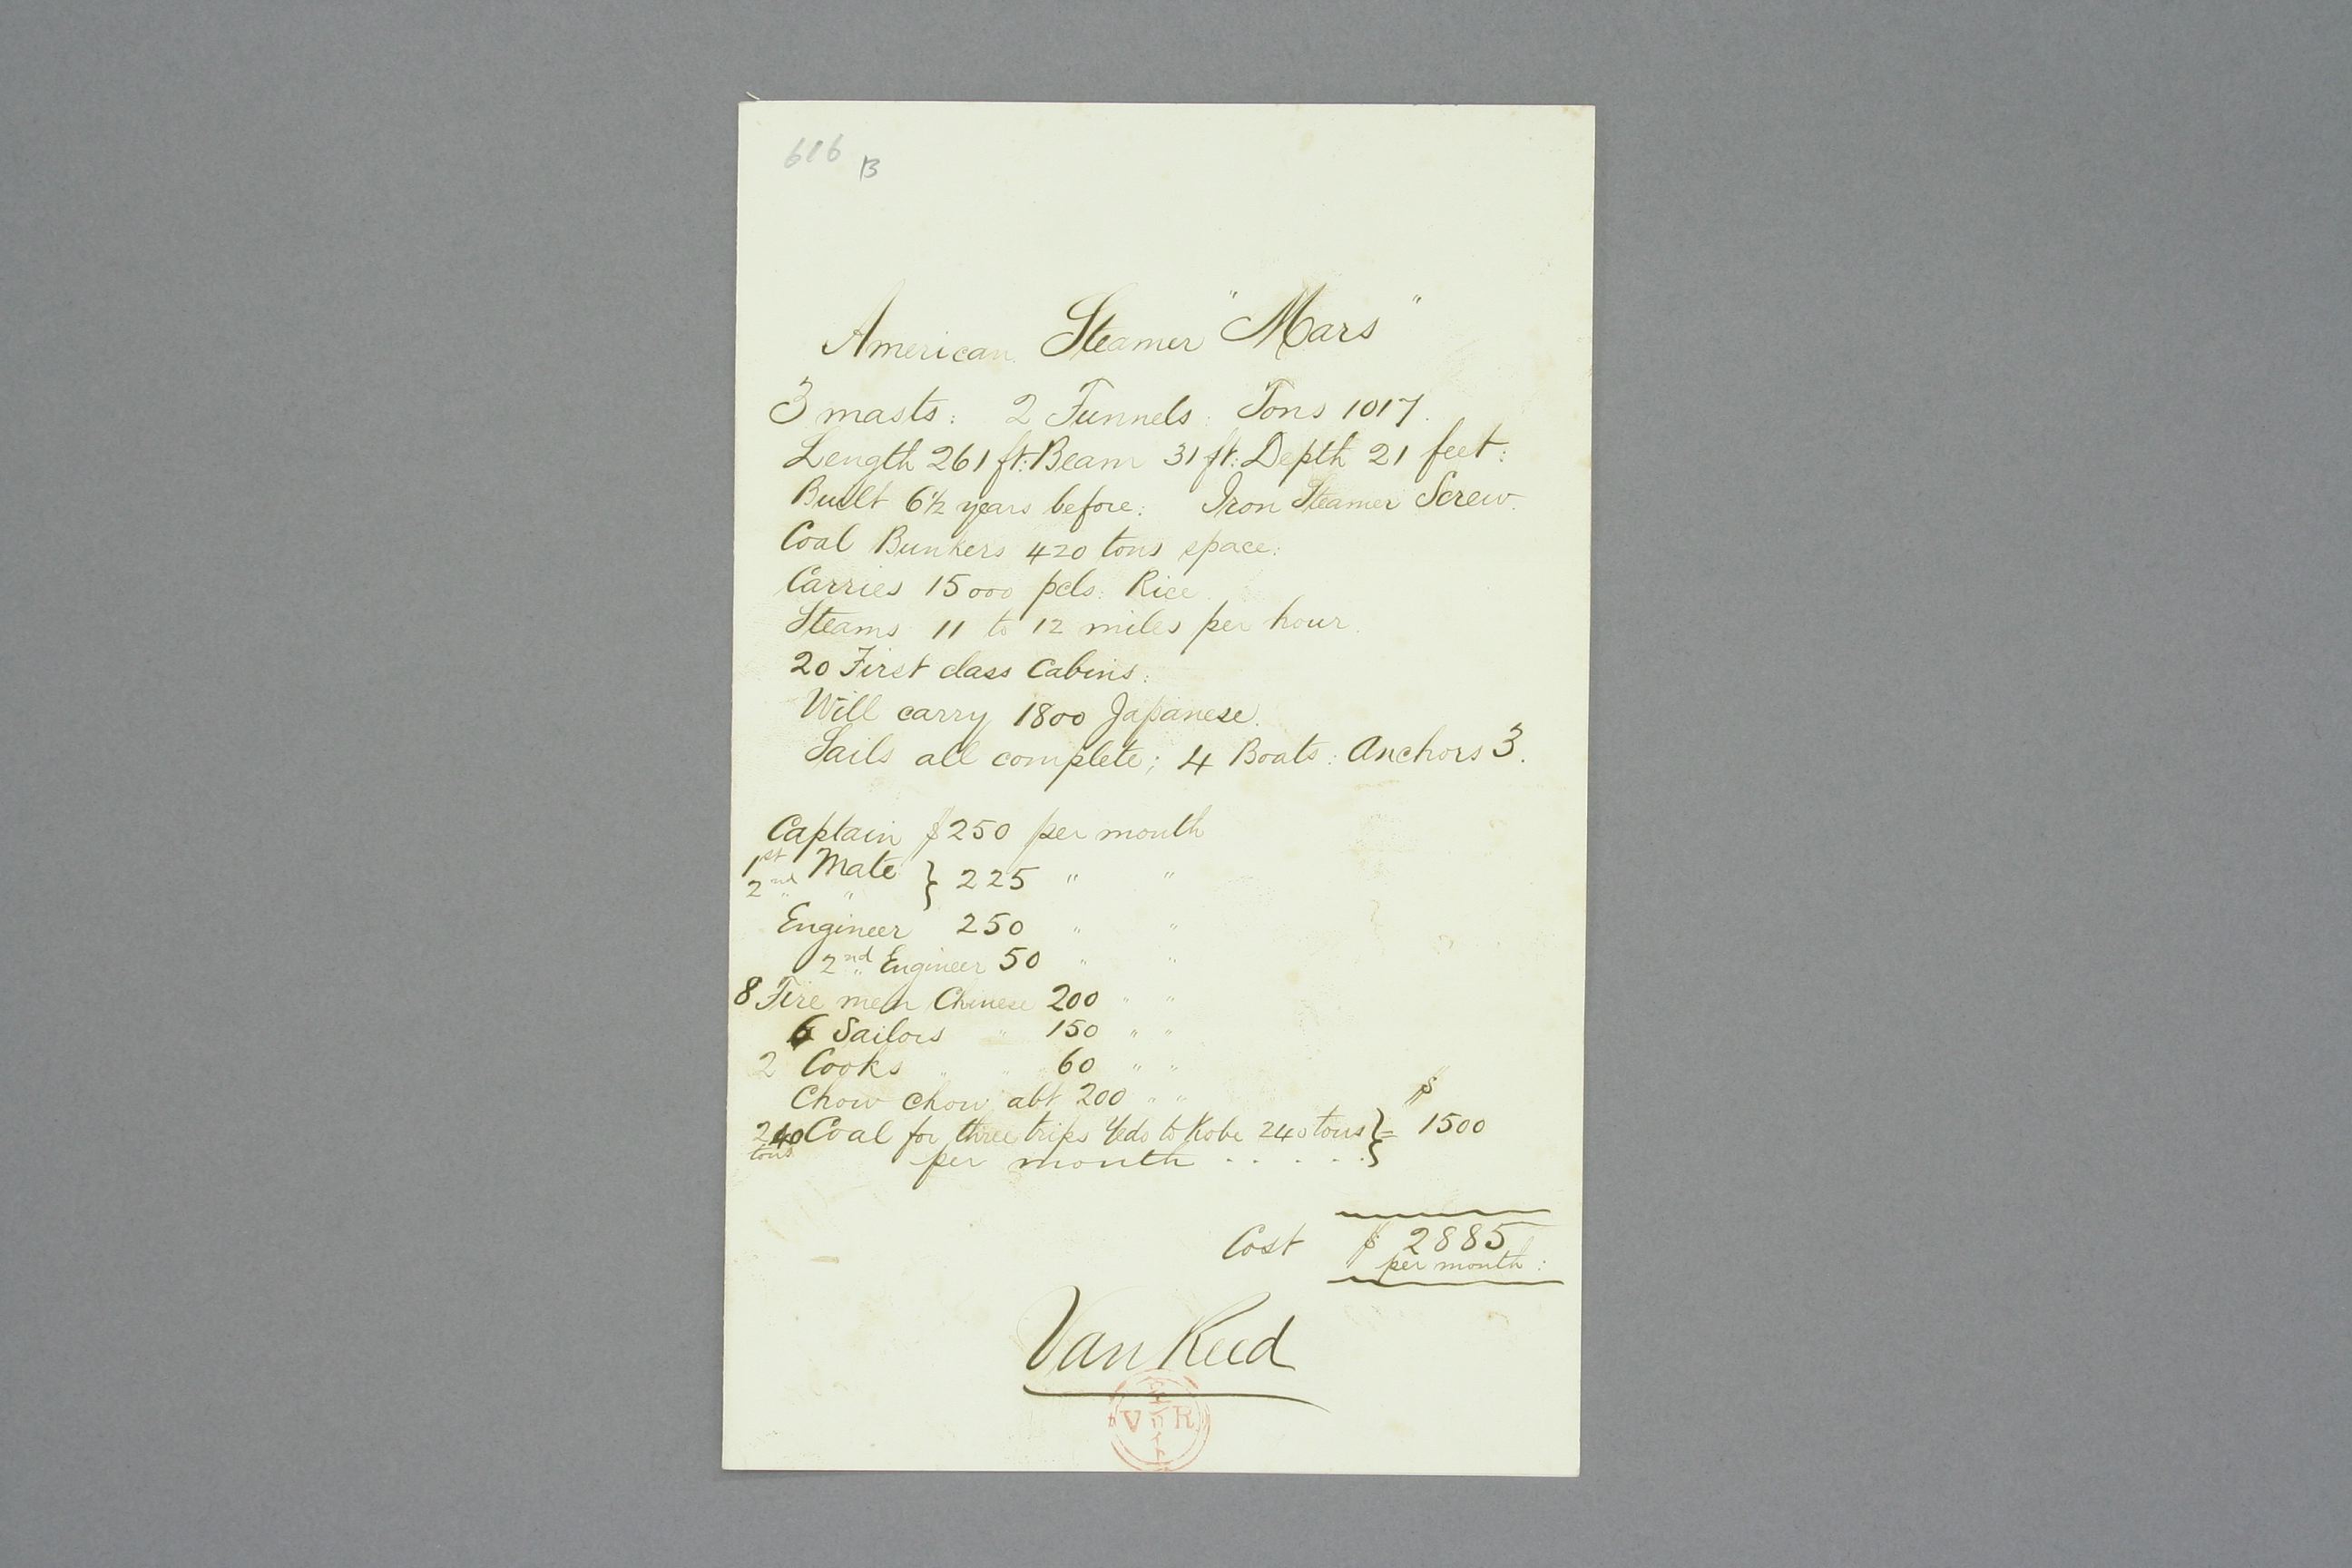 616 B
American Steamer "Mars"
3 masts: 2 Funnels: Tons 1017.
Length 261 ft: Beam 31 ft: Depth 21 feet:
Built 6½ years before: Iron Steamer Screw.
Coal Bunkers 420 tons space:
Carries 15000 pcls: Rice.
Steams 11 to 12 miles per hour.
20 First class Cabins:
Will carry 1800 Japanese.
Sails all complete; 4 Boats: Anchors 3.
Captain $250 per month
1st Mate } 225 " "
2nd " "
Engineer 250 " "
2nd Engineer 50 " "
8 Fire men Chinese 200 " "
6 Sailors " 150 " "
2 Cooks " " 60 " "
Chow chow abt 200 " "
$
240 Coal for three trips Yedo to Kobe 240 tons } = 1500
tons per month . . . . .
Cost $ 2885
per month:
Van Reed
V R